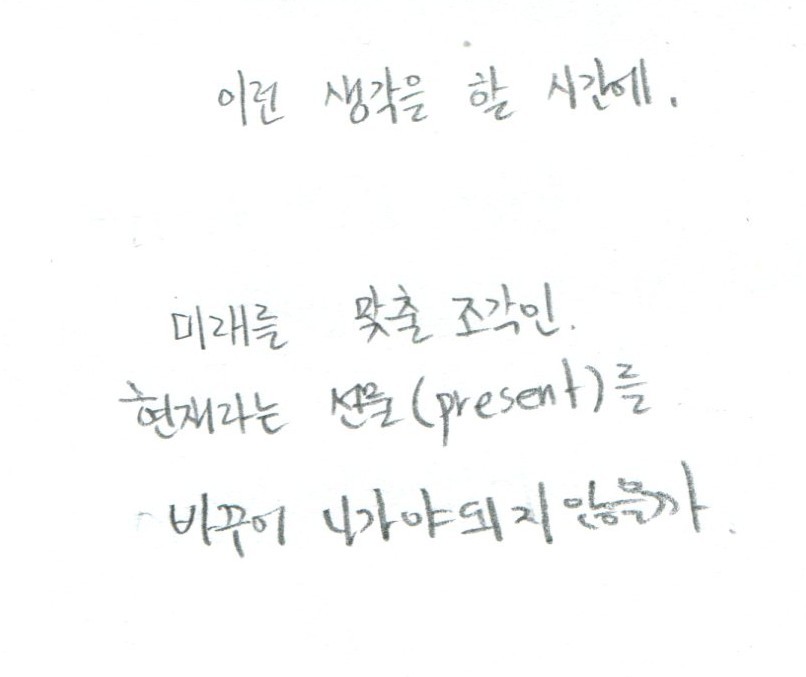 이런 생각을 할 시간에.
미래를 맞출 조각인.
현재라는 선물(present)를
바꾸어 나가야되지 않을까.